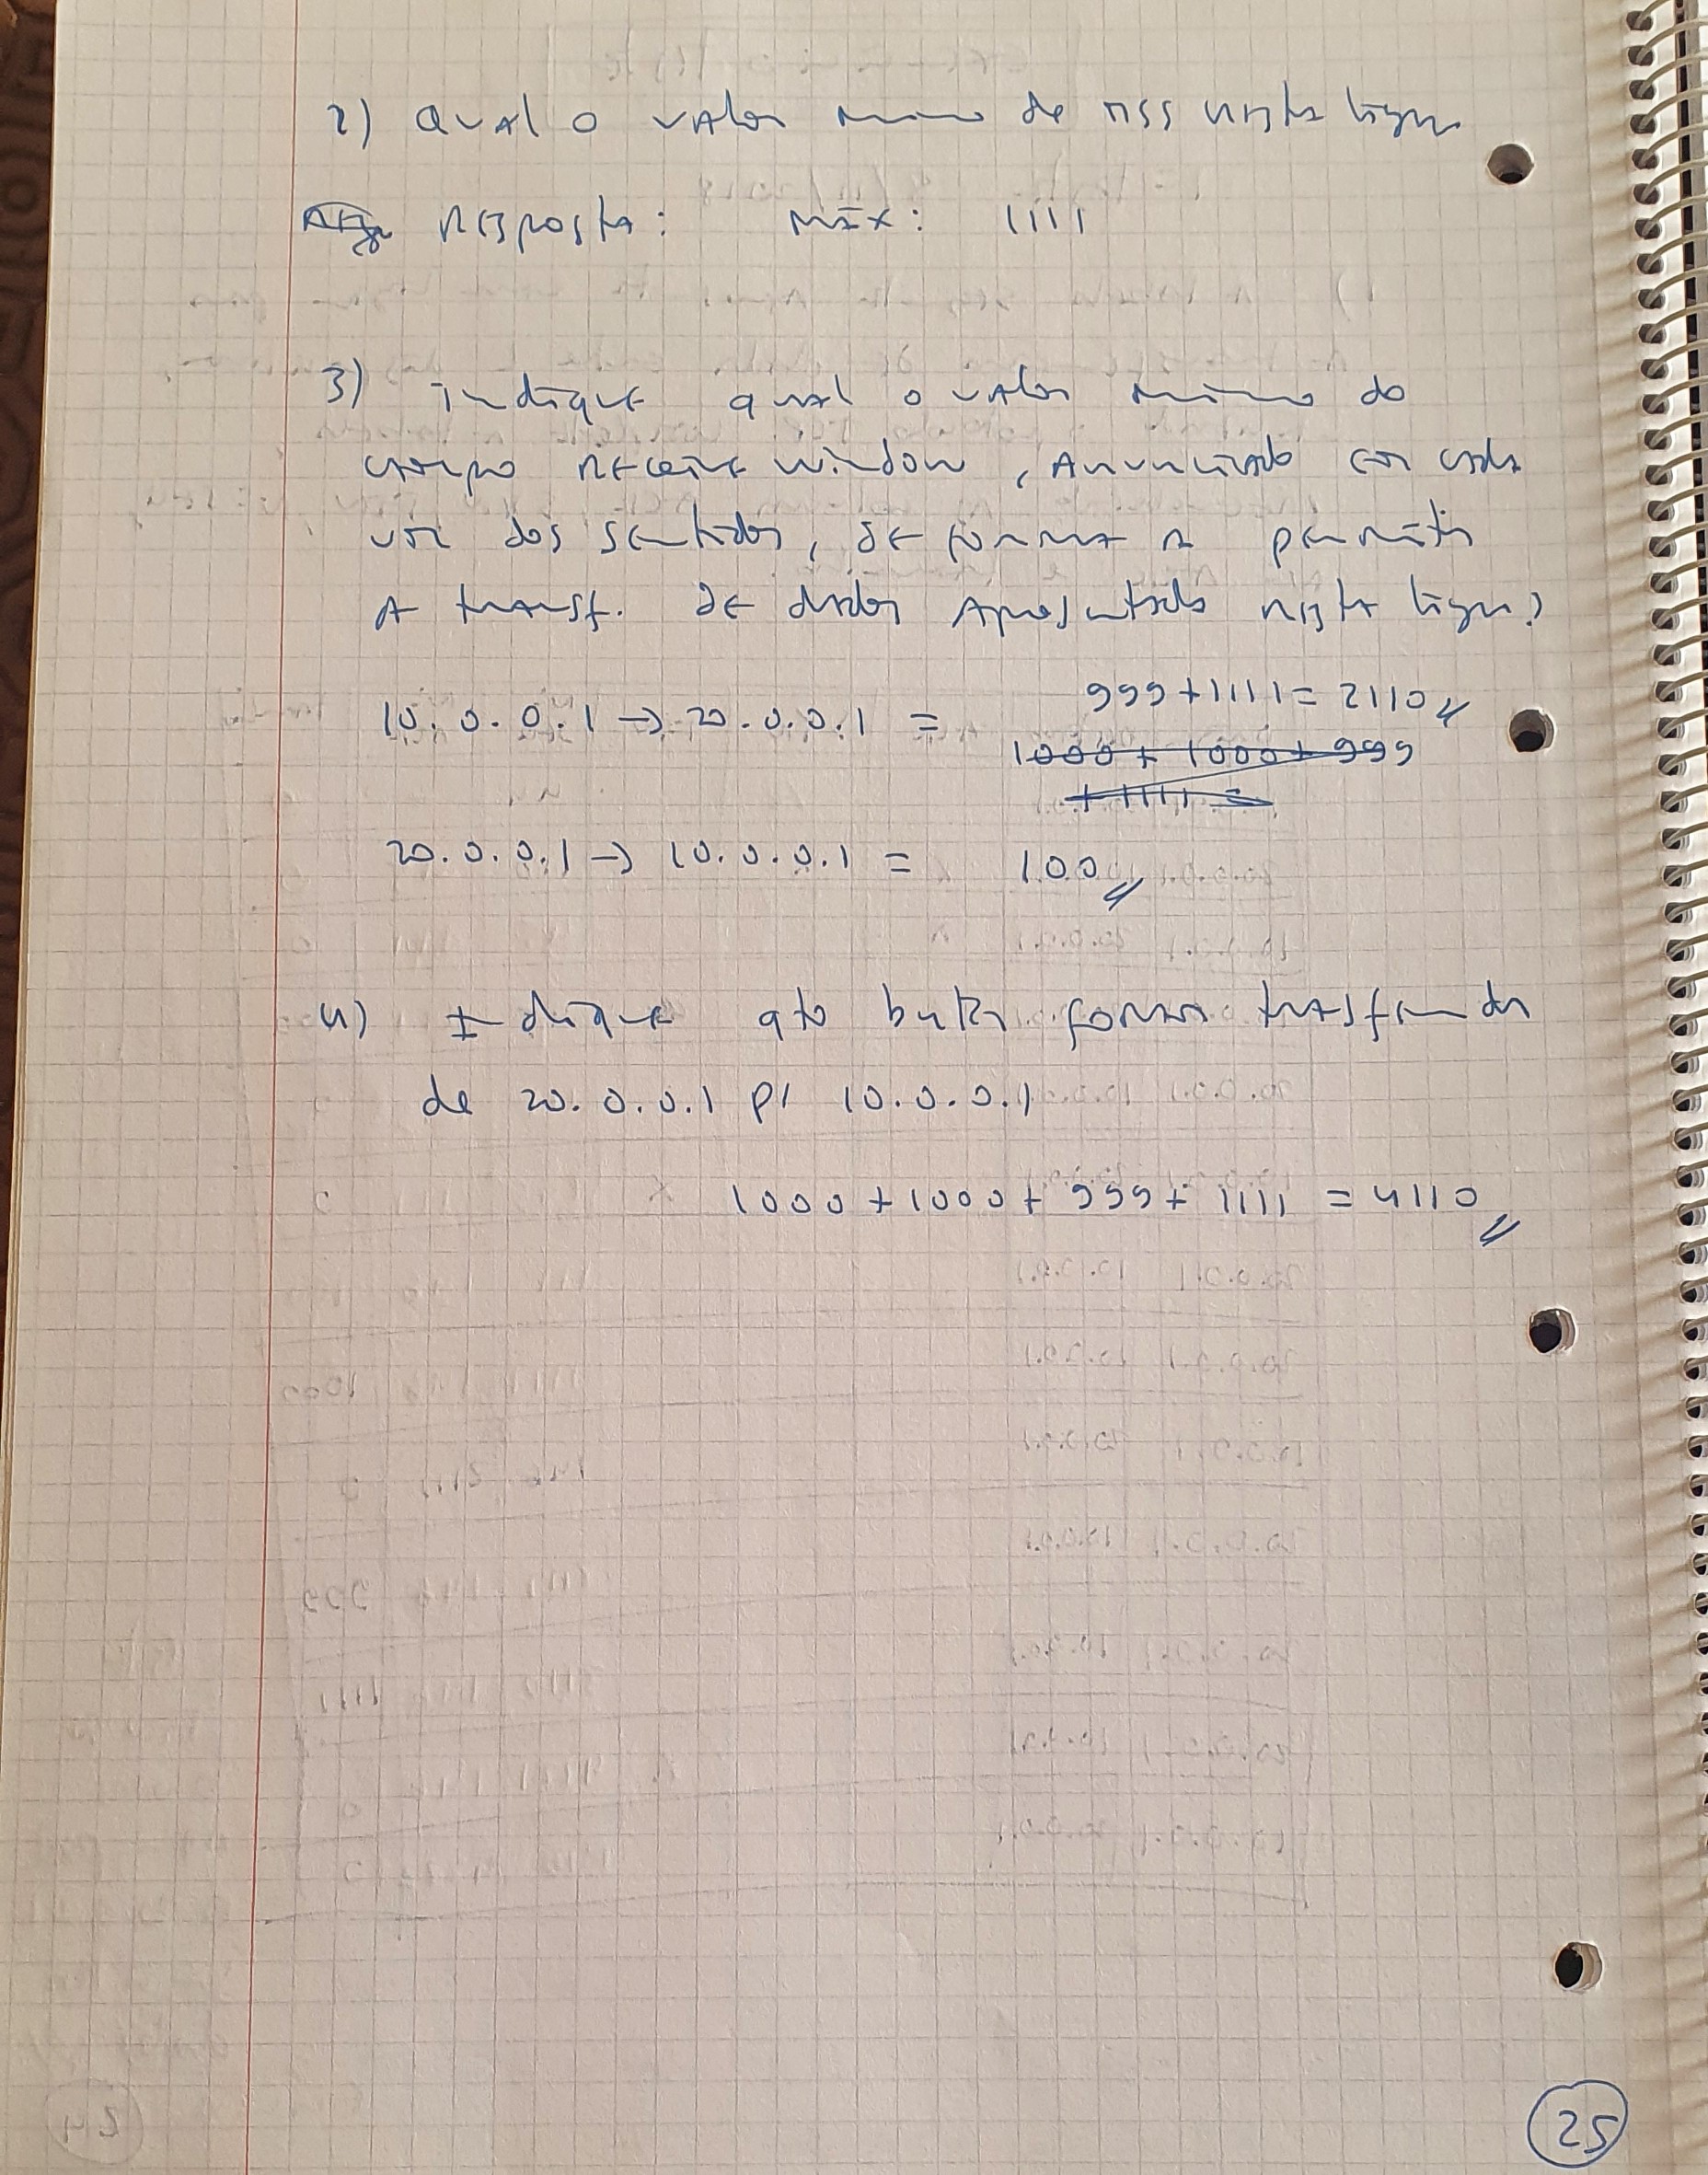 2) Qual o valor mínimo de MSS nesta lig
Resposta: Máx: 1111
3) Indique qual o valor mínimo do
campo receive window, anunciado em cada
um dos sentidos, de forma a permitir
a transf. de dados apresentada nesta lig?
999+1111=2110
10.0.0.1 → 20.0.0.1 =
1000 + 1000 + 999
+ 1111 =
20.0.0.1 → 10.0.0.1 = 100
4) Indique qto bytes foram
de 20.0.0.1 p/ 10.0.0.1
1000 + 1000 + 999 + 1111 = 4110
25